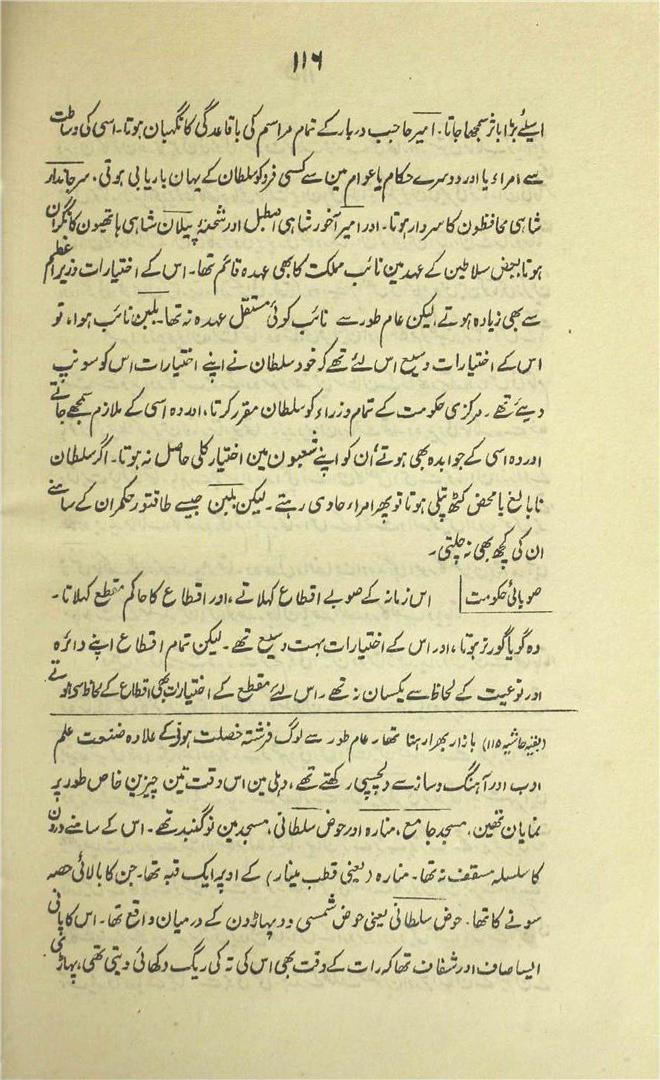 ۱۱۶
اسلئے بڑا با اثر سمجھا جاتا۔ امیر حاجب دربار کے تمام مراسم کی باقاعدگی کا نگہبان ہوتا۔ اسی کی وساطت
سے امراء یا اور دوسرے حکام یا عوام مین سے کسی فرد کو سلطان کے یہان باریابی ہوتی، سر جاندار
شاہی محافظون کا سردار ہوتا۔ اور امیر آخور شاہی اصطبل اور شحنۂ پیلان شاہی ہاتھیون کا نگران
ہوتا، بعض سلاطین کے عہد مین نائب مملکت کا بھی عہدہ قائم تھا۔ اس کے اختیارات وزیر اعظم
سے بھی زیادہ ہوتے، لیکن عام طور سے نائب کوئی مستقل عہدہ نہ تھا۔ بلبن نائب ہوا، تو
اس کے اختیارات وسیع اس لئے تھے کہ خود سلطان نے اپنے اختیارات اس کو سونپ
دیئے تھے۔ مرکزی حکومت کے تمام وزراء کو سلطان مقرر کرتا، اور وہ اسی کے ملازم سمجھے جاتے
اور وہ اسی کے جوابدہ بھی ہوتے، اُن کو اپنے شعبون مین اختیار کلی حاصل نہ ہوتا۔ اگر سلطان
نابالغ یا محض کٹھ پتلی ہوتا تو پھر امراء حاوی رہتے۔ لیکن بلبن جیسے طاقتور حکمران کے سامنے
ان کی کچھ بھی نہ چلتی۔
صوبائی حکومت اس زمانہ کے صوبے اقطاع کہلاتے، اور اقطاع کا حاکم مقطع کہلاتا۔
وہ گویا گورنر ہوتا، اور اس کے اختیارات بہت وسیع تھے۔ لیکن تمام اقطاع اپنے دائرہ
اور نوعیت کے لحاظ سے یکسان نہ تھے۔ اس لئے مقطع کے اختیارات بھی اقطاع کے لحاظ سے ہوتے
(بقیہ حاشیہ ۱۱۵) بازار بھرا رہتا تھا۔ عام طور سے لوگ فرشتہ خصلت ہونے کے علاوہ صنعت علم
ادب اور آہنگ و ساز سے دلچسپی رکھتے تھے، دہلی مین اس وقت تین چیزین خاص طور پر
نمایان تھین، مسجد جامع، منارہ اور حوض سلطانی، مسجد مین نو گنبد تھے۔ اس کے سامنے
کا سلسلہ مسقف نہ تھا۔ منارہ (یعنی قطب مینار) کے اوپر ایک قبہ تھا۔ جن کا بالائی حصہ
سونے کا تھا۔ حوض سلطانی یعنی حوض شمسی دو پہاڑون کے درمیان واقع تھا۔ اس کا پانی
ایسا صاف اور شفاف تھا کہ رات کے وقت بھی اس کی تہ کی ریگ دکھائی دیتی تھی، پہاڑی